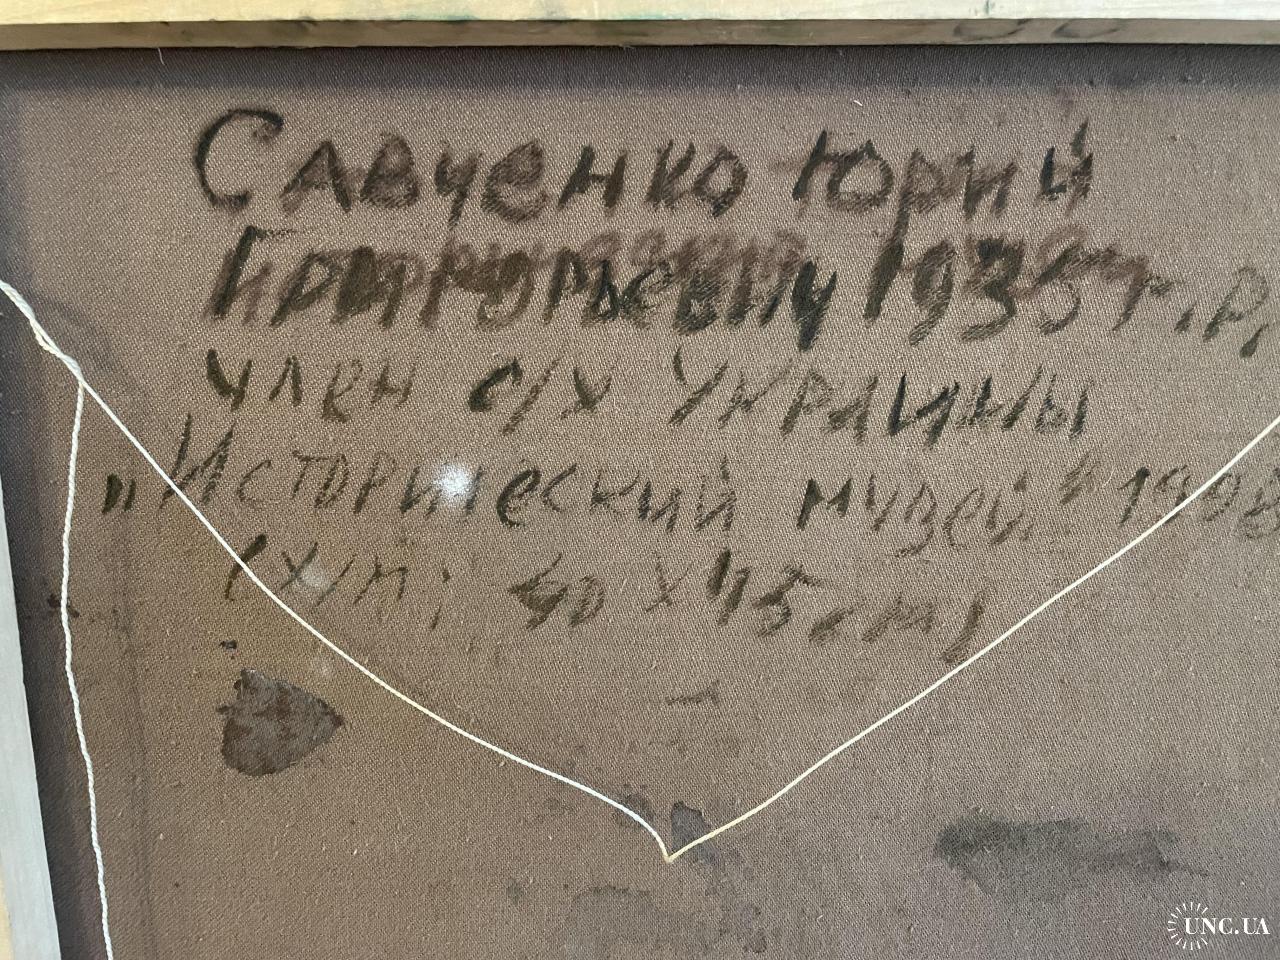 Савченко Юрий
193 г.р.
член с/х Украины
„Исторический музей" 199
(х/м; 40 х 45 см)
UNC.UA